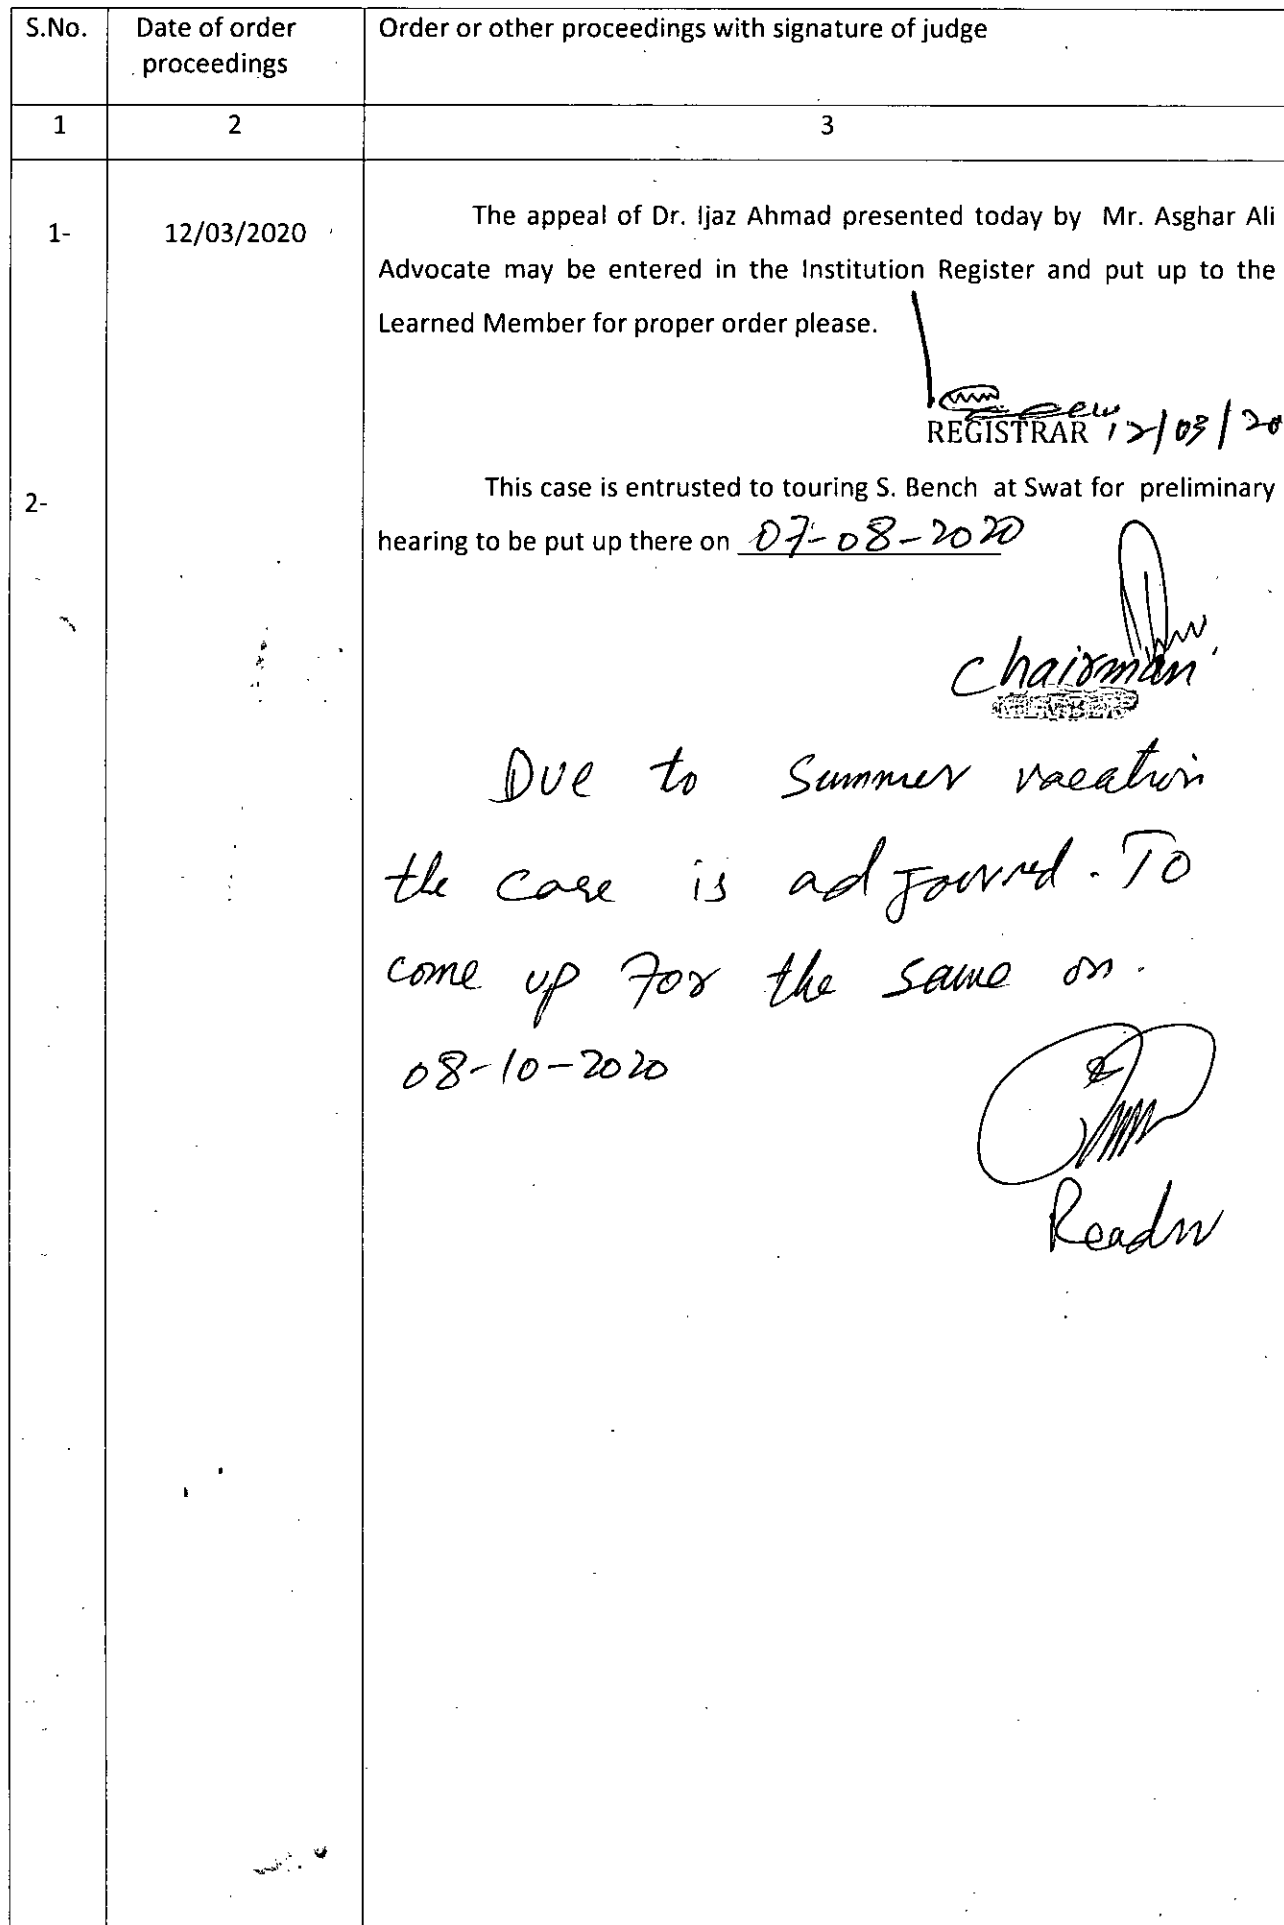 S.No.
Date of order
proceedings
Order or other proceedings with signature of judge
1
2
3
1-
12/03/2020
The appeal of Dr. Ijaz Ahmad presented today by Mr. Asghar Ali
Advocate may be entered in the Institution Register and put up to the
Learned Member for proper order please.
REGISTRAR 12/03/20
2-
This case is entrusted to touring S. Bench at Swat for preliminary
hearing to be put up there on 07-08-2020
Chairman
MEMBER
Due to Summer vacation
the case is adjourned. To
come up for the same on.
08-10-2020
Reader